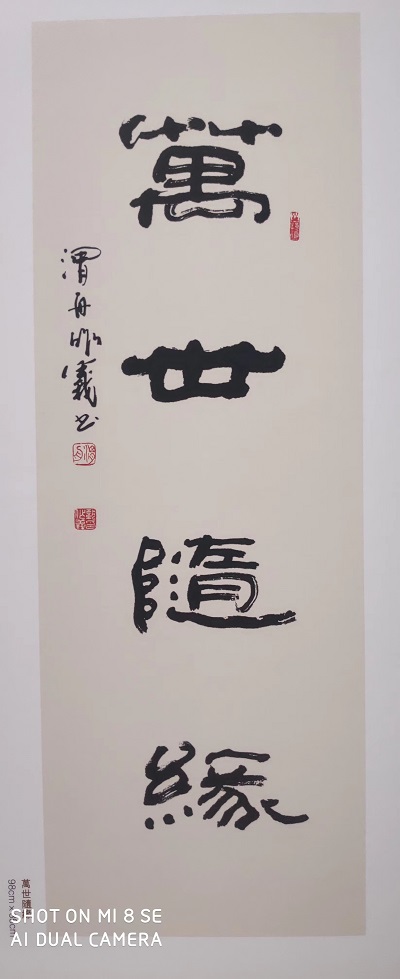 萬世隨緣
渭舟昭儀书
萬世隨
98cm x
SHOT ON MI 8 SE
AI DUAL CAMERA